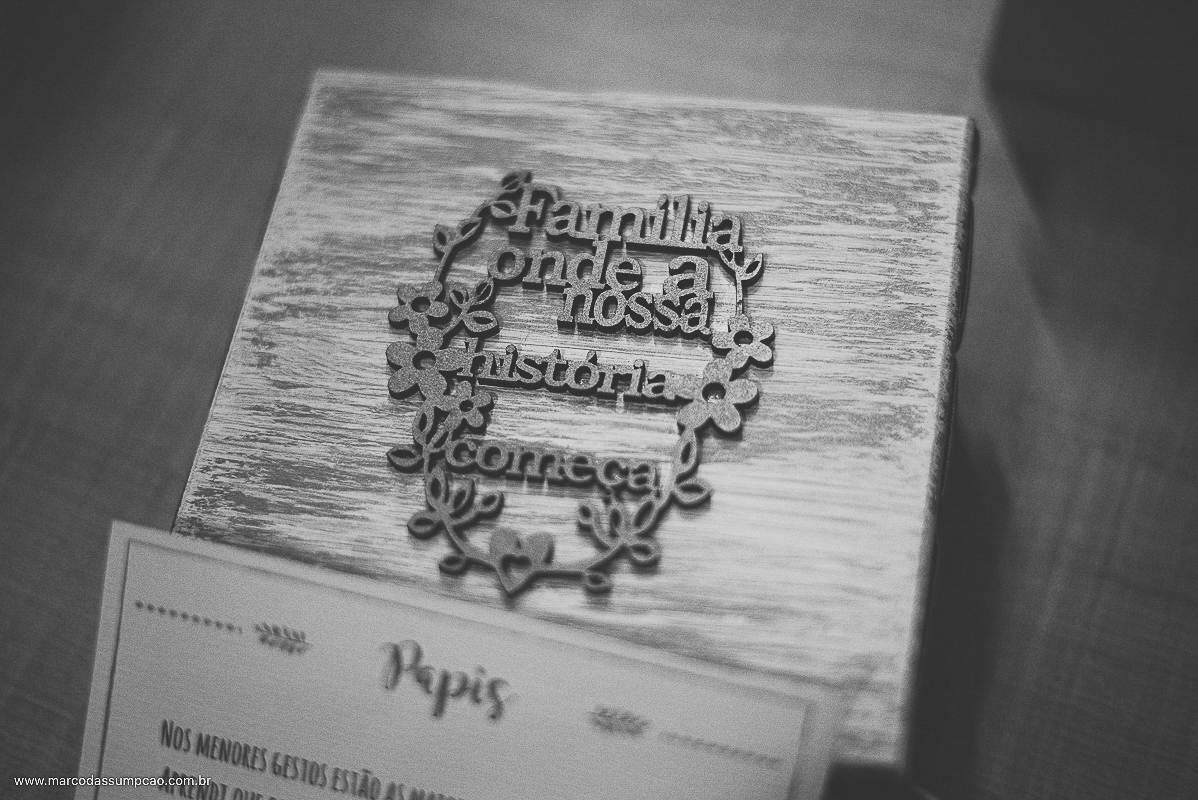 Família
onde a
nossa
história
começa
Papis
Nos menores gestos estão as
Aprendi que
www.marcodassumpcao.com.br